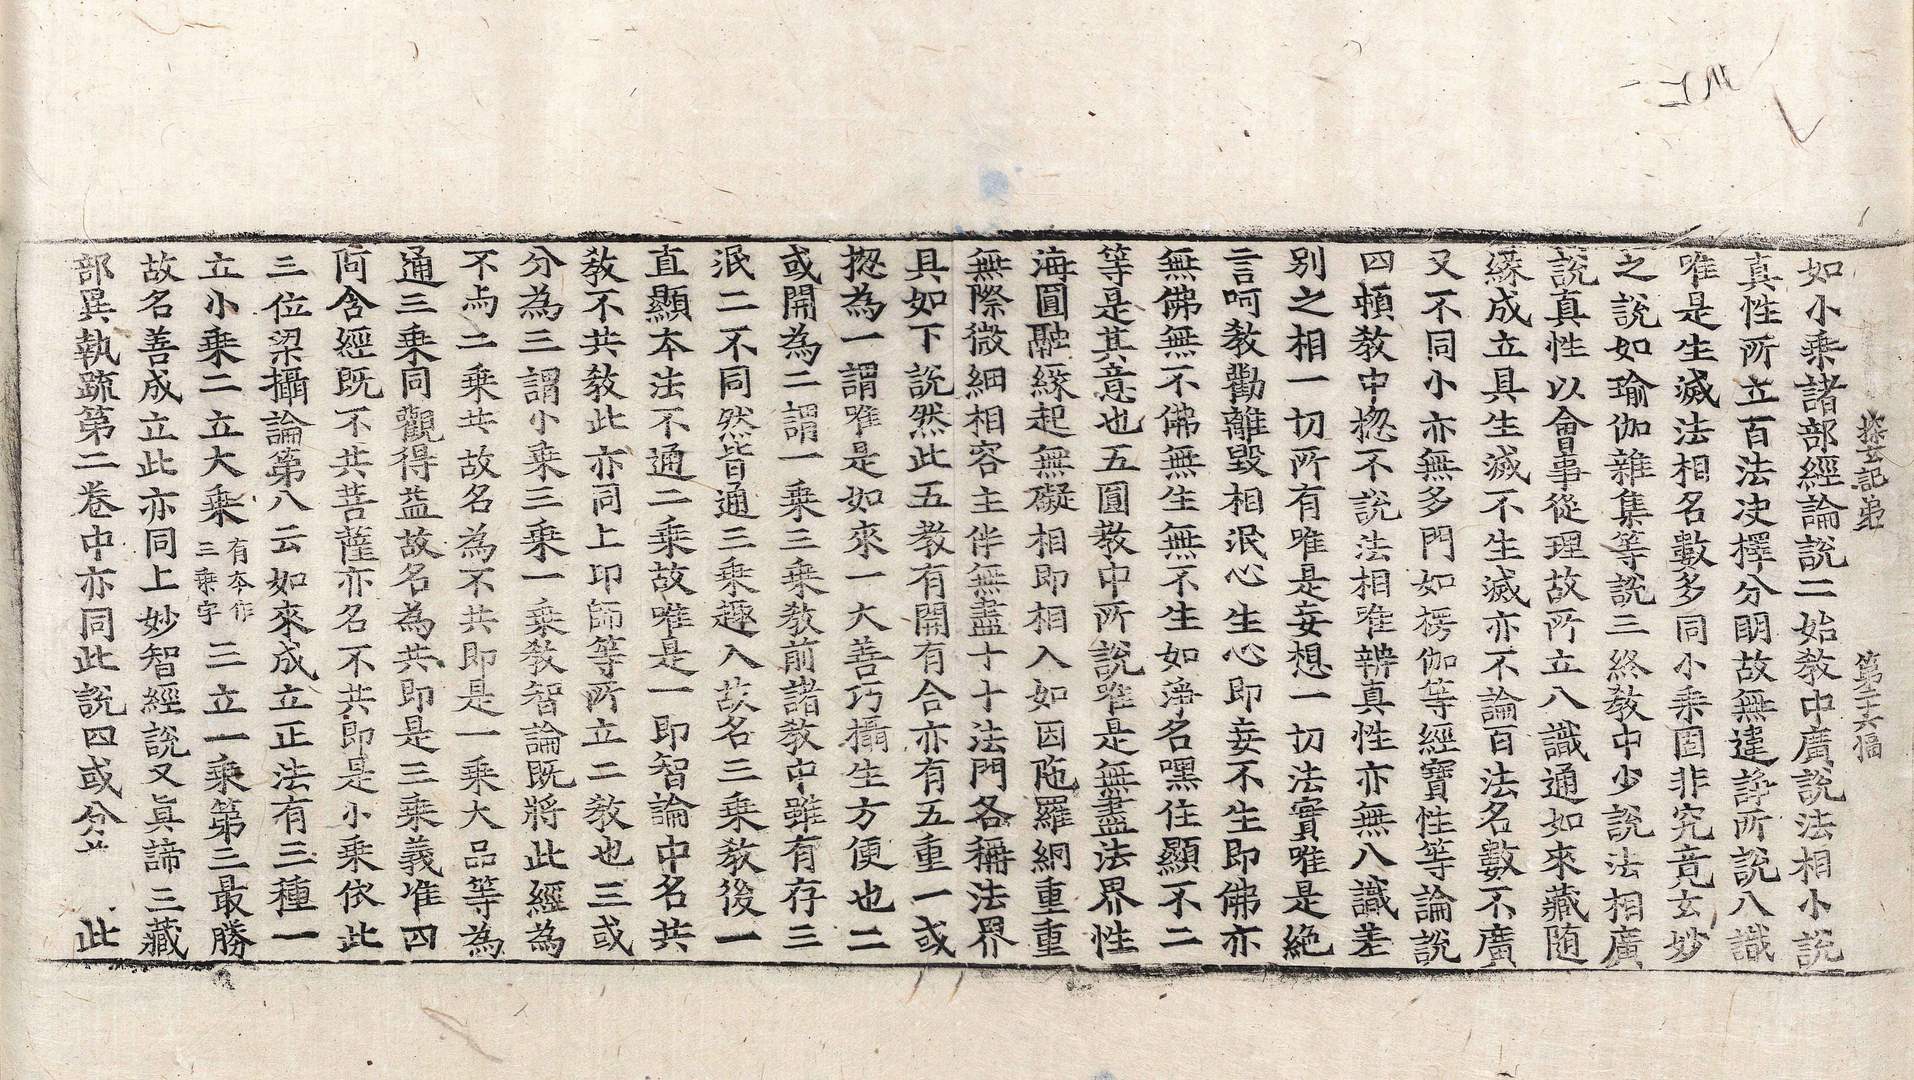 探玄記第 第二十六幅
如小乘諸部經論說二始教中廣說法相小說
真性所立百法決擇分明故無違諍所說八識
唯是生滅法相名數多同小乘固非究竟玄妙
之說如瑜伽雜集等說三終教中少說法相廣
說真性以會事從理故所立八識通如來藏随
緣成立具生滅不生滅亦不論百法名數不廣
又不同小亦無多門如楞伽等經寶性等論說
四頓教中揔不說法相唯辨真性亦無八識差
别之相一切所有唯是妄想一切法實唯是絶
言呵教勸離毀相泯心生心即妄不生即佛亦
無佛無不佛無生無不生如淨名嘿住顯不二
等是其意也五圓教中所說唯是無盡法界性
海圓融緣起無礙相即相入如因陁羅網重重
無際微細相容主伴無盡十十法門各稱法界
具如下說然此五教有開有合亦有五重一或
揔為一謂唯是如來一大善巧攝生方便也二
或開為二謂一乘三乘教前諸教中雖有存三
泯二不同然皆通三乘趣入故名三乘教後一
直顯本法不通二乘故唯是一即智論中名共
教不共教此亦同上印師等所立二教也三或
分為三謂小乘三乘一乘教智論既將此經為
不与二乘共故名為不共即是一乘大品等為
通三乘同觀得益故名為共即是三乘義准四
阿含經既不共菩薩亦名不共即是小乘依此
三位梁攝論第八云如來成立正法有三種一
立小乘二立大乘有本作三乘字三立一乘第三最勝
故名善成立此亦同上妙智經說又真諦三藏
部異執疏第二卷中亦同此說四或分 此